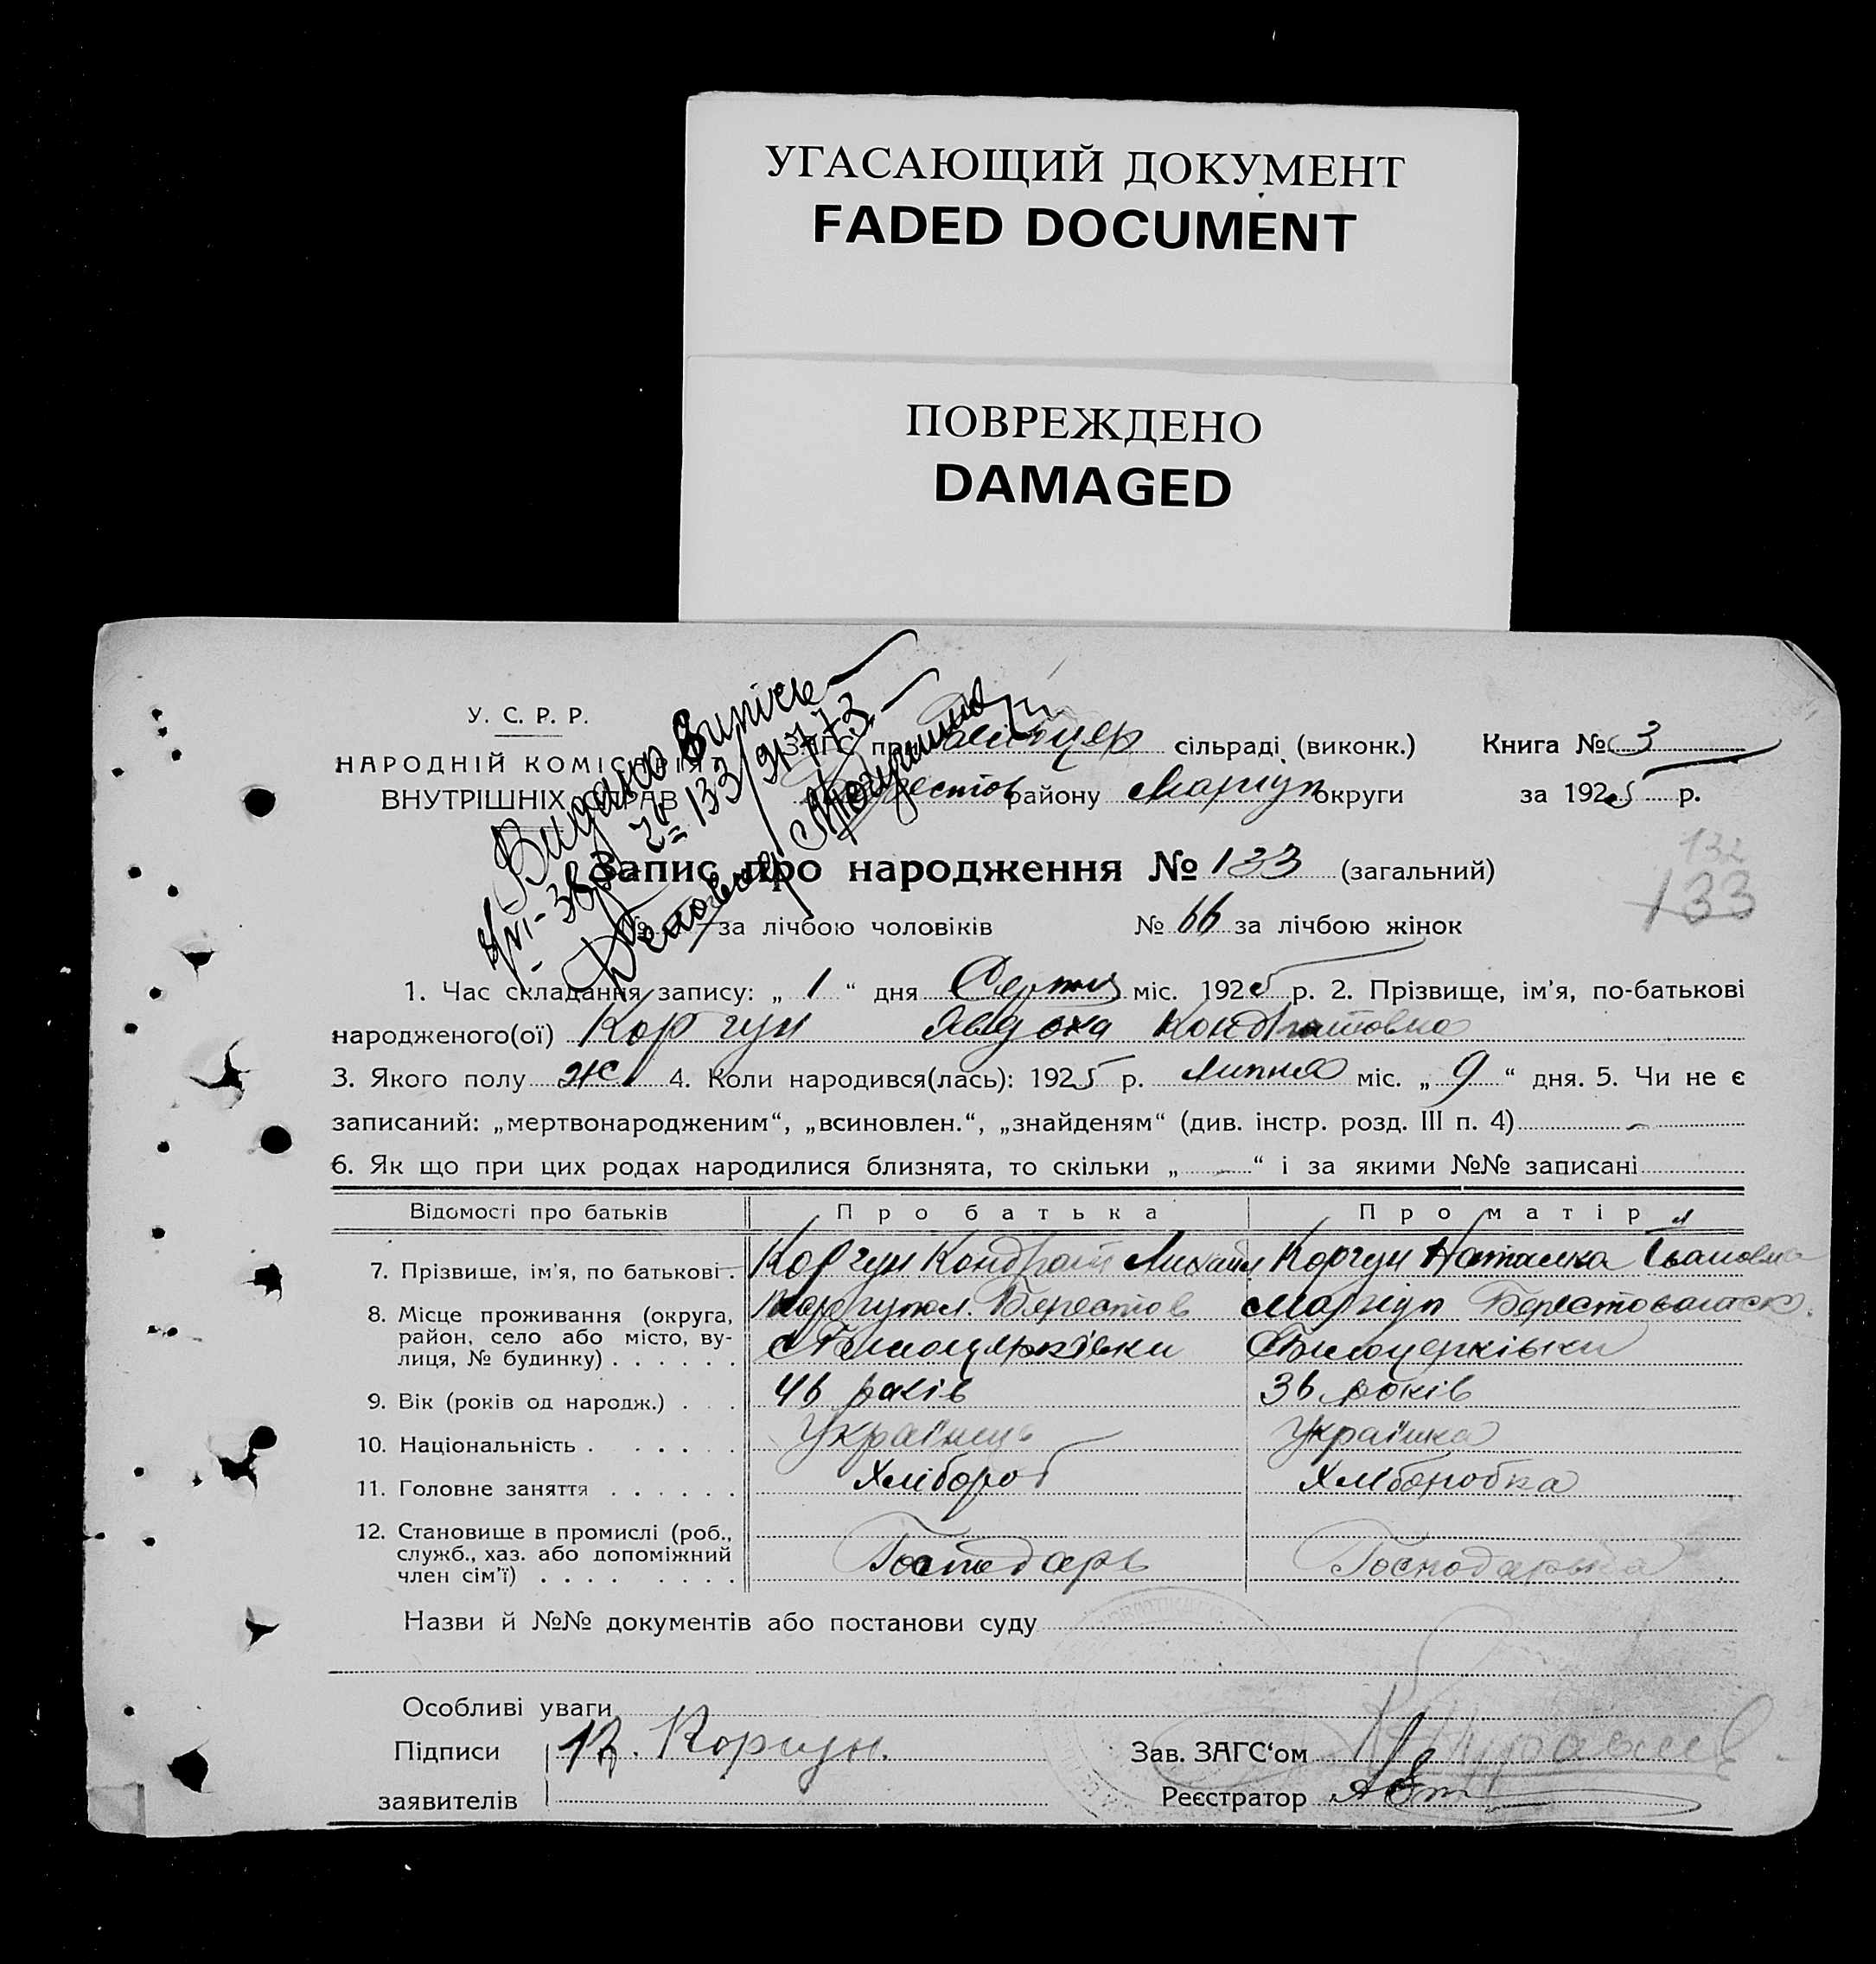 УГАСАЮЩИЙ ДОКУМЕНТ
FADED DOCUMENT
ПОВРЕЖДЕНО
DAMAGED
У. С. Р. Р.
НАРОДНІЙ КОМІСАРІЯТ
ВНУТРІШНІХ СПРАВ
Видано Выпись
133/917773
ЗАГС при Білоцер сільраді (виконк.) Книга № 3
Берестов району Маріуп округи за 1925 р.
Запис про народження № 133 (загальний)
132
133
№ за лічбою чоловіків № 66 за лічбою жінок
1. Час складання запису: „ 1 “ дня Серпня міс. 1925 р. 2. Прізвище, ім’я, по-батькові
народженого(ої) Коргун Явдоха Кондратовна
3. Якого полу ж. 4. Коли народився(лась): 1925 р. Липня міс. „ 9 “ дня. 5. Чи не є
записаний: „мертвонародженим“, „всиновлен.“, „знайденям“ (див. інстр. розд. III п. 4) –
6. Як що при цих родах народилися близнята, то скільки „ – “ і за якими №№ записані
Відомості про батьків Про батька Про матір
7. Прізвище, ім’я, по батькові . Коргун Кондрат Михайл Коргун Наталка Івановна
8. Місце проживання (округа, Берестов Маріуп Берестоватск.
район, село або місто, ву-
лиця, № будинку) . . . . . . с Білоцерківки Білоцерківки
9. Вік (років од народж.) . . . 46 років 36 років
10. Національність . . . . . Українець Українка
11. Головне заняття . . . . . . Хлібороб Хліборобка
12. Становище в промислі (роб.,
служб., хаз. або допоміжний Господарь Господарька
член сім’ї) . . . . . . . . .
Назви й №№ документів або постанови суду
Особливі уваги
Підписи К. Коргун. Зав. ЗАГС‘ом
заявителів Реєстратор